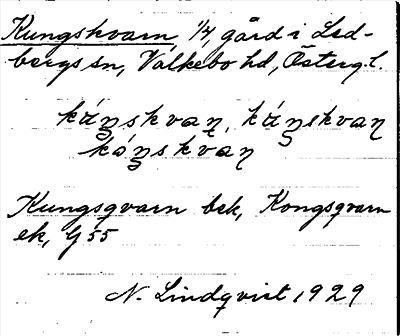 Kungskvarn, 1/4, gård i Led-
bergs sn, Valkebo hd, Östergl.
kúŋskvaɳ, kúŋskvaɳ
kóŋskvaɳ
Kungsqvarn bek, Kongsqvarn
ek, G 55
N. Lindqvist 1929